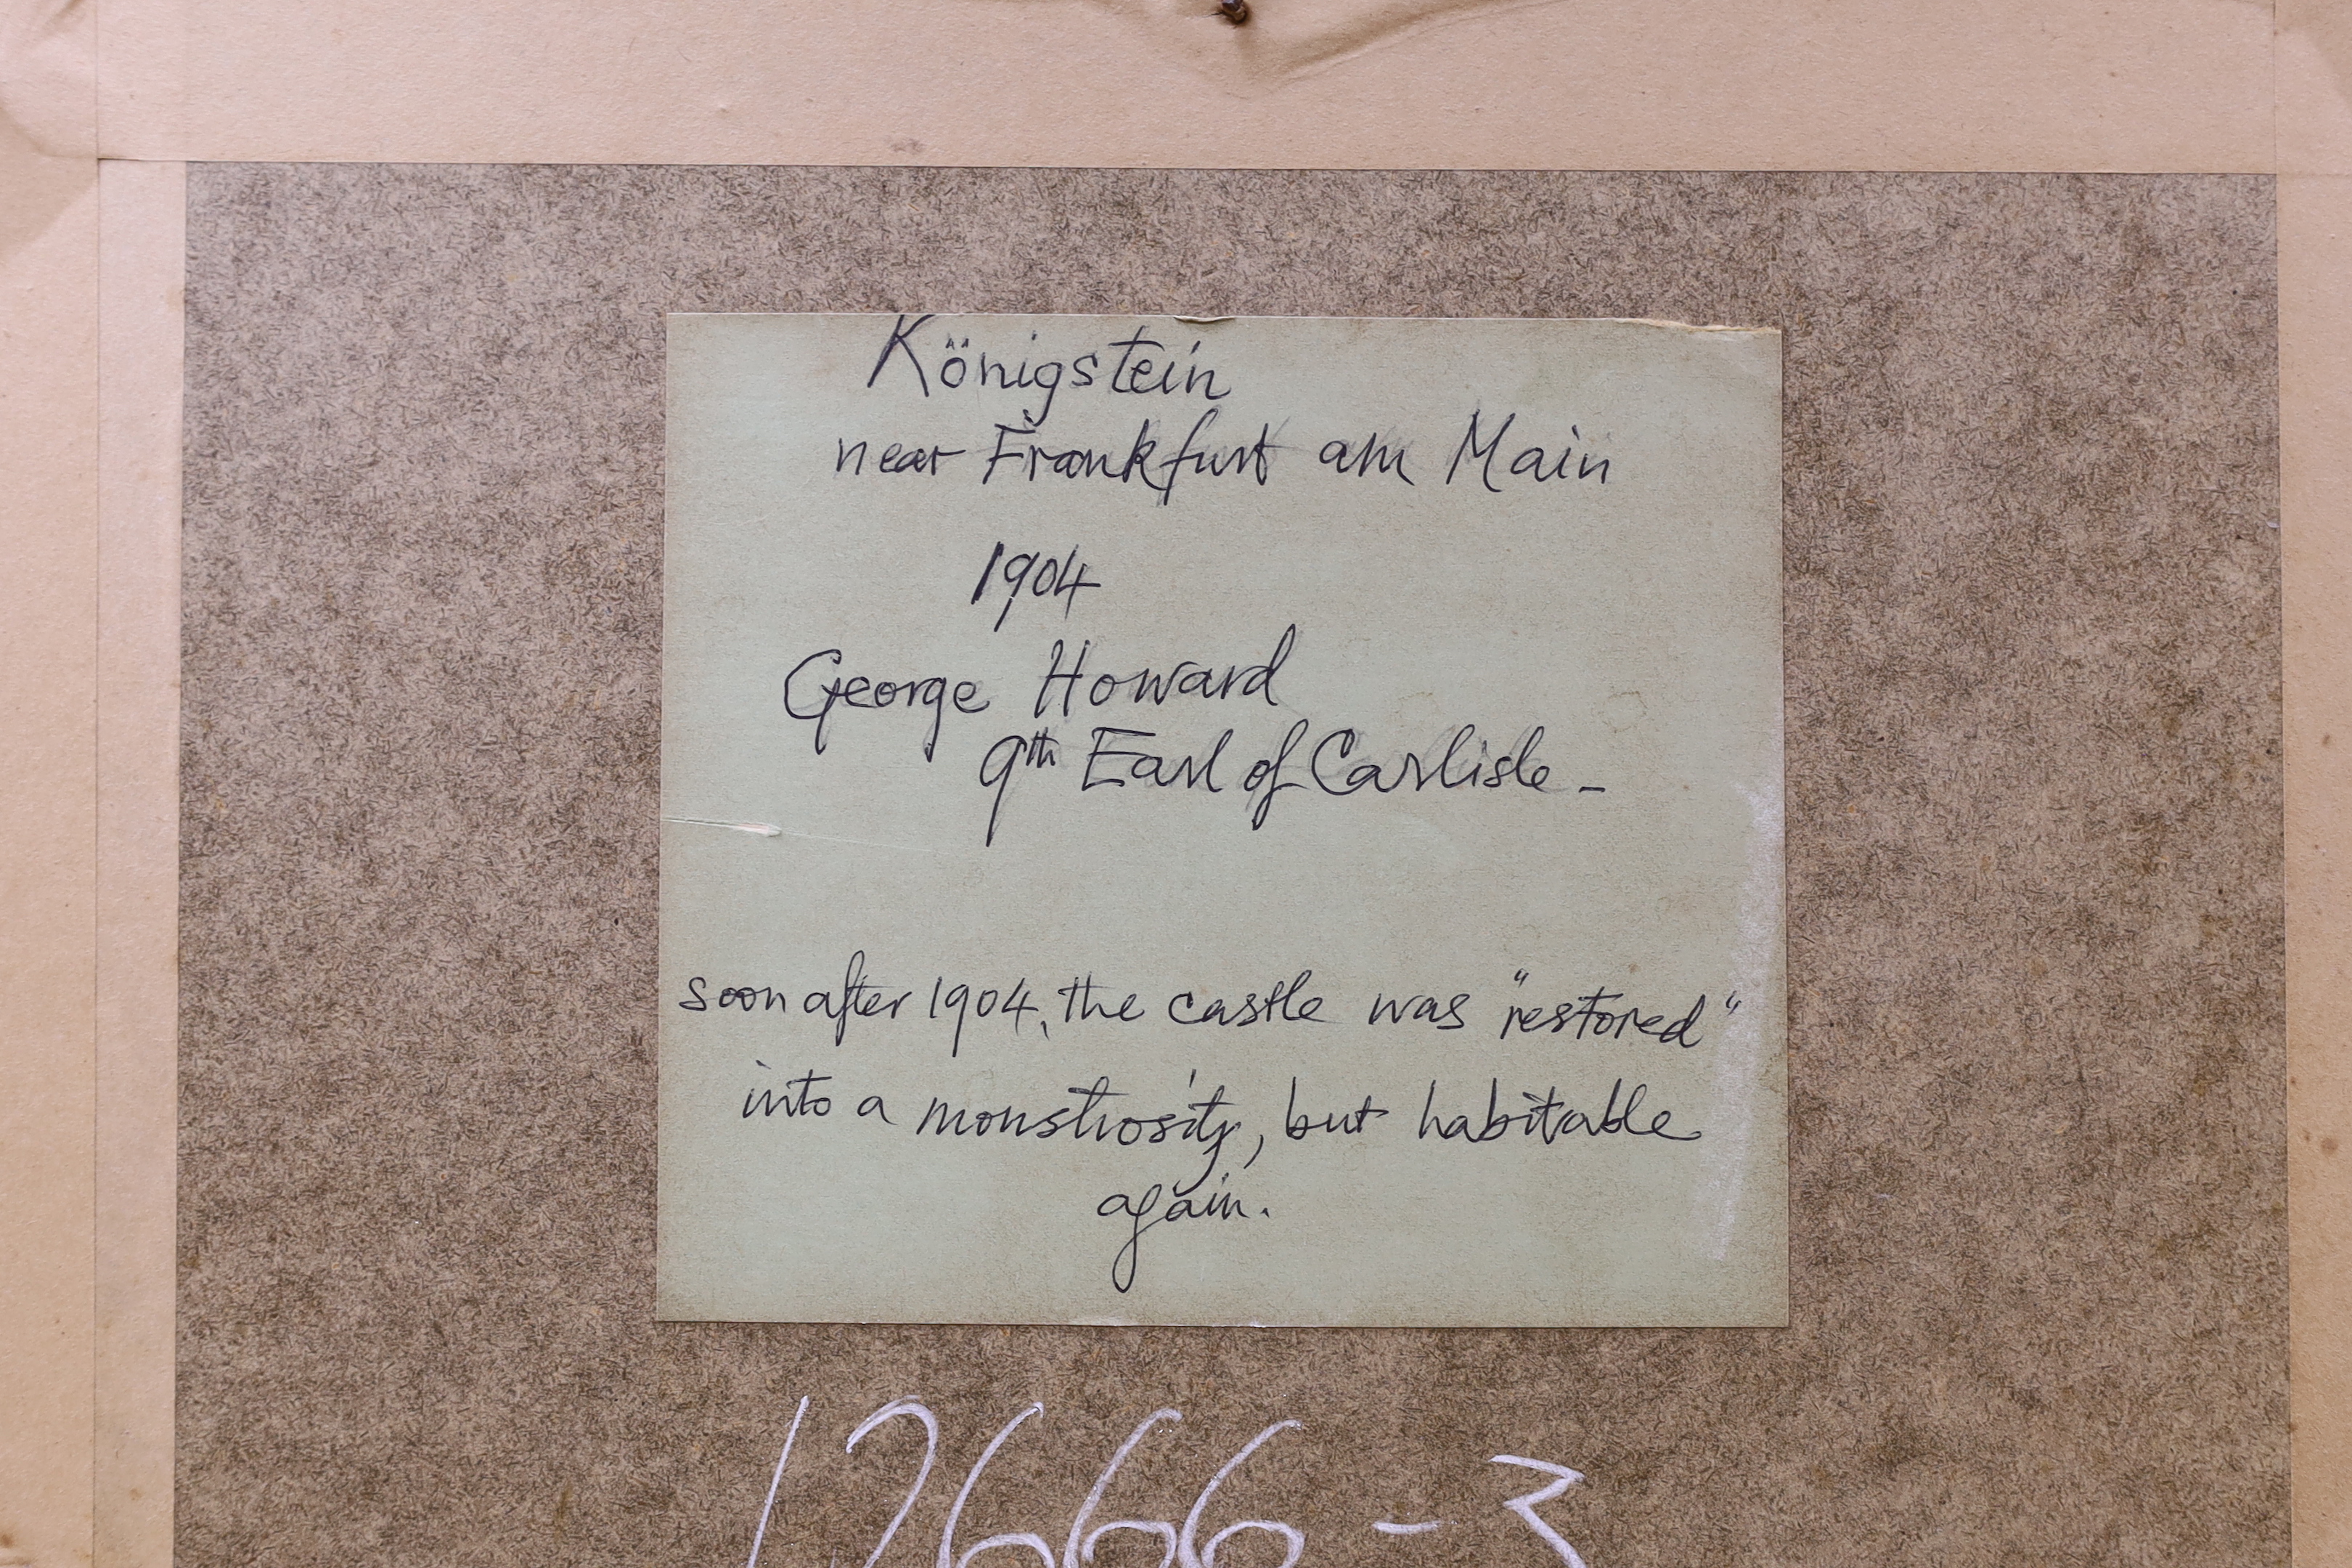 Königstein
near Frankfurt am Main
1904
George Howard
9th Earl of Carlisle -
soon after 1904, the castle was "restored"
into a monstrosity, but habitable
again.
12666-3